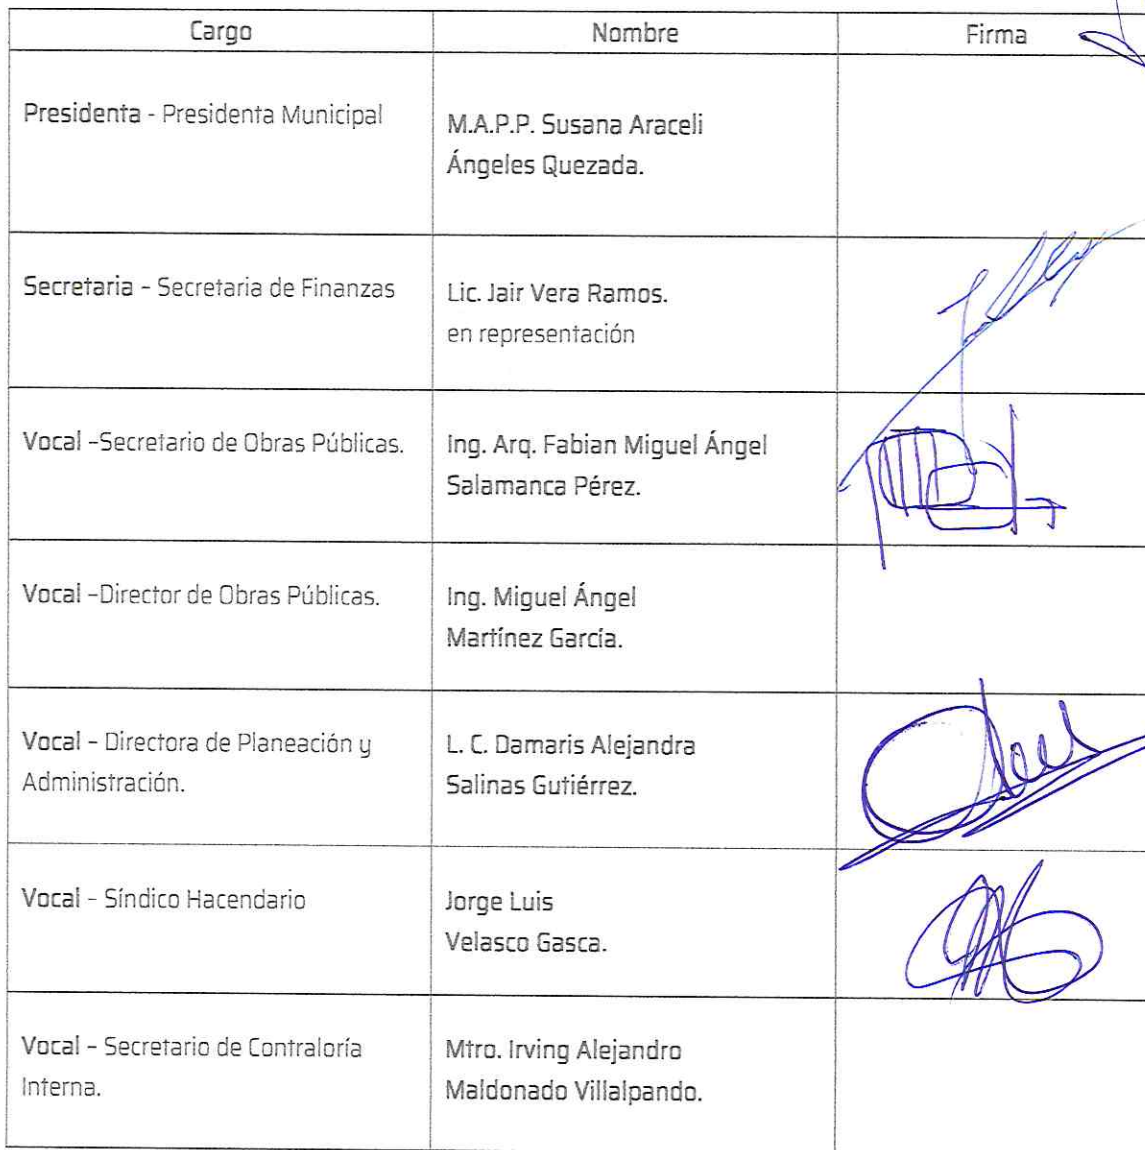 Cargo Nombre Firma
Presidenta - Presidenta Municipal
M.A.P.P. Susana Araceli
Ángeles Quezada.
Secretaria - Secretaria de Finanzas
Lic. Jair Vera Ramos.
en representación
Vocal -Secretario de Obras Públicas.
Ing. Arq. Fabian Miguel Ángel
Salamanca Pérez.
Vocal -Director de Obras Públicas.
Ing. Miguel Ángel
Martínez García.
Vocal - Directora de Planeación y
Administración.
L. C. Damaris Alejandra
Salinas Gutiérrez.
Vocal - Síndico Hacendario
Jorge Luis
Velasco Gasca.
Vocal - Secretario de Contraloría
Interna.
Mtro. Irving Alejandro
Maldonado Villalpando.